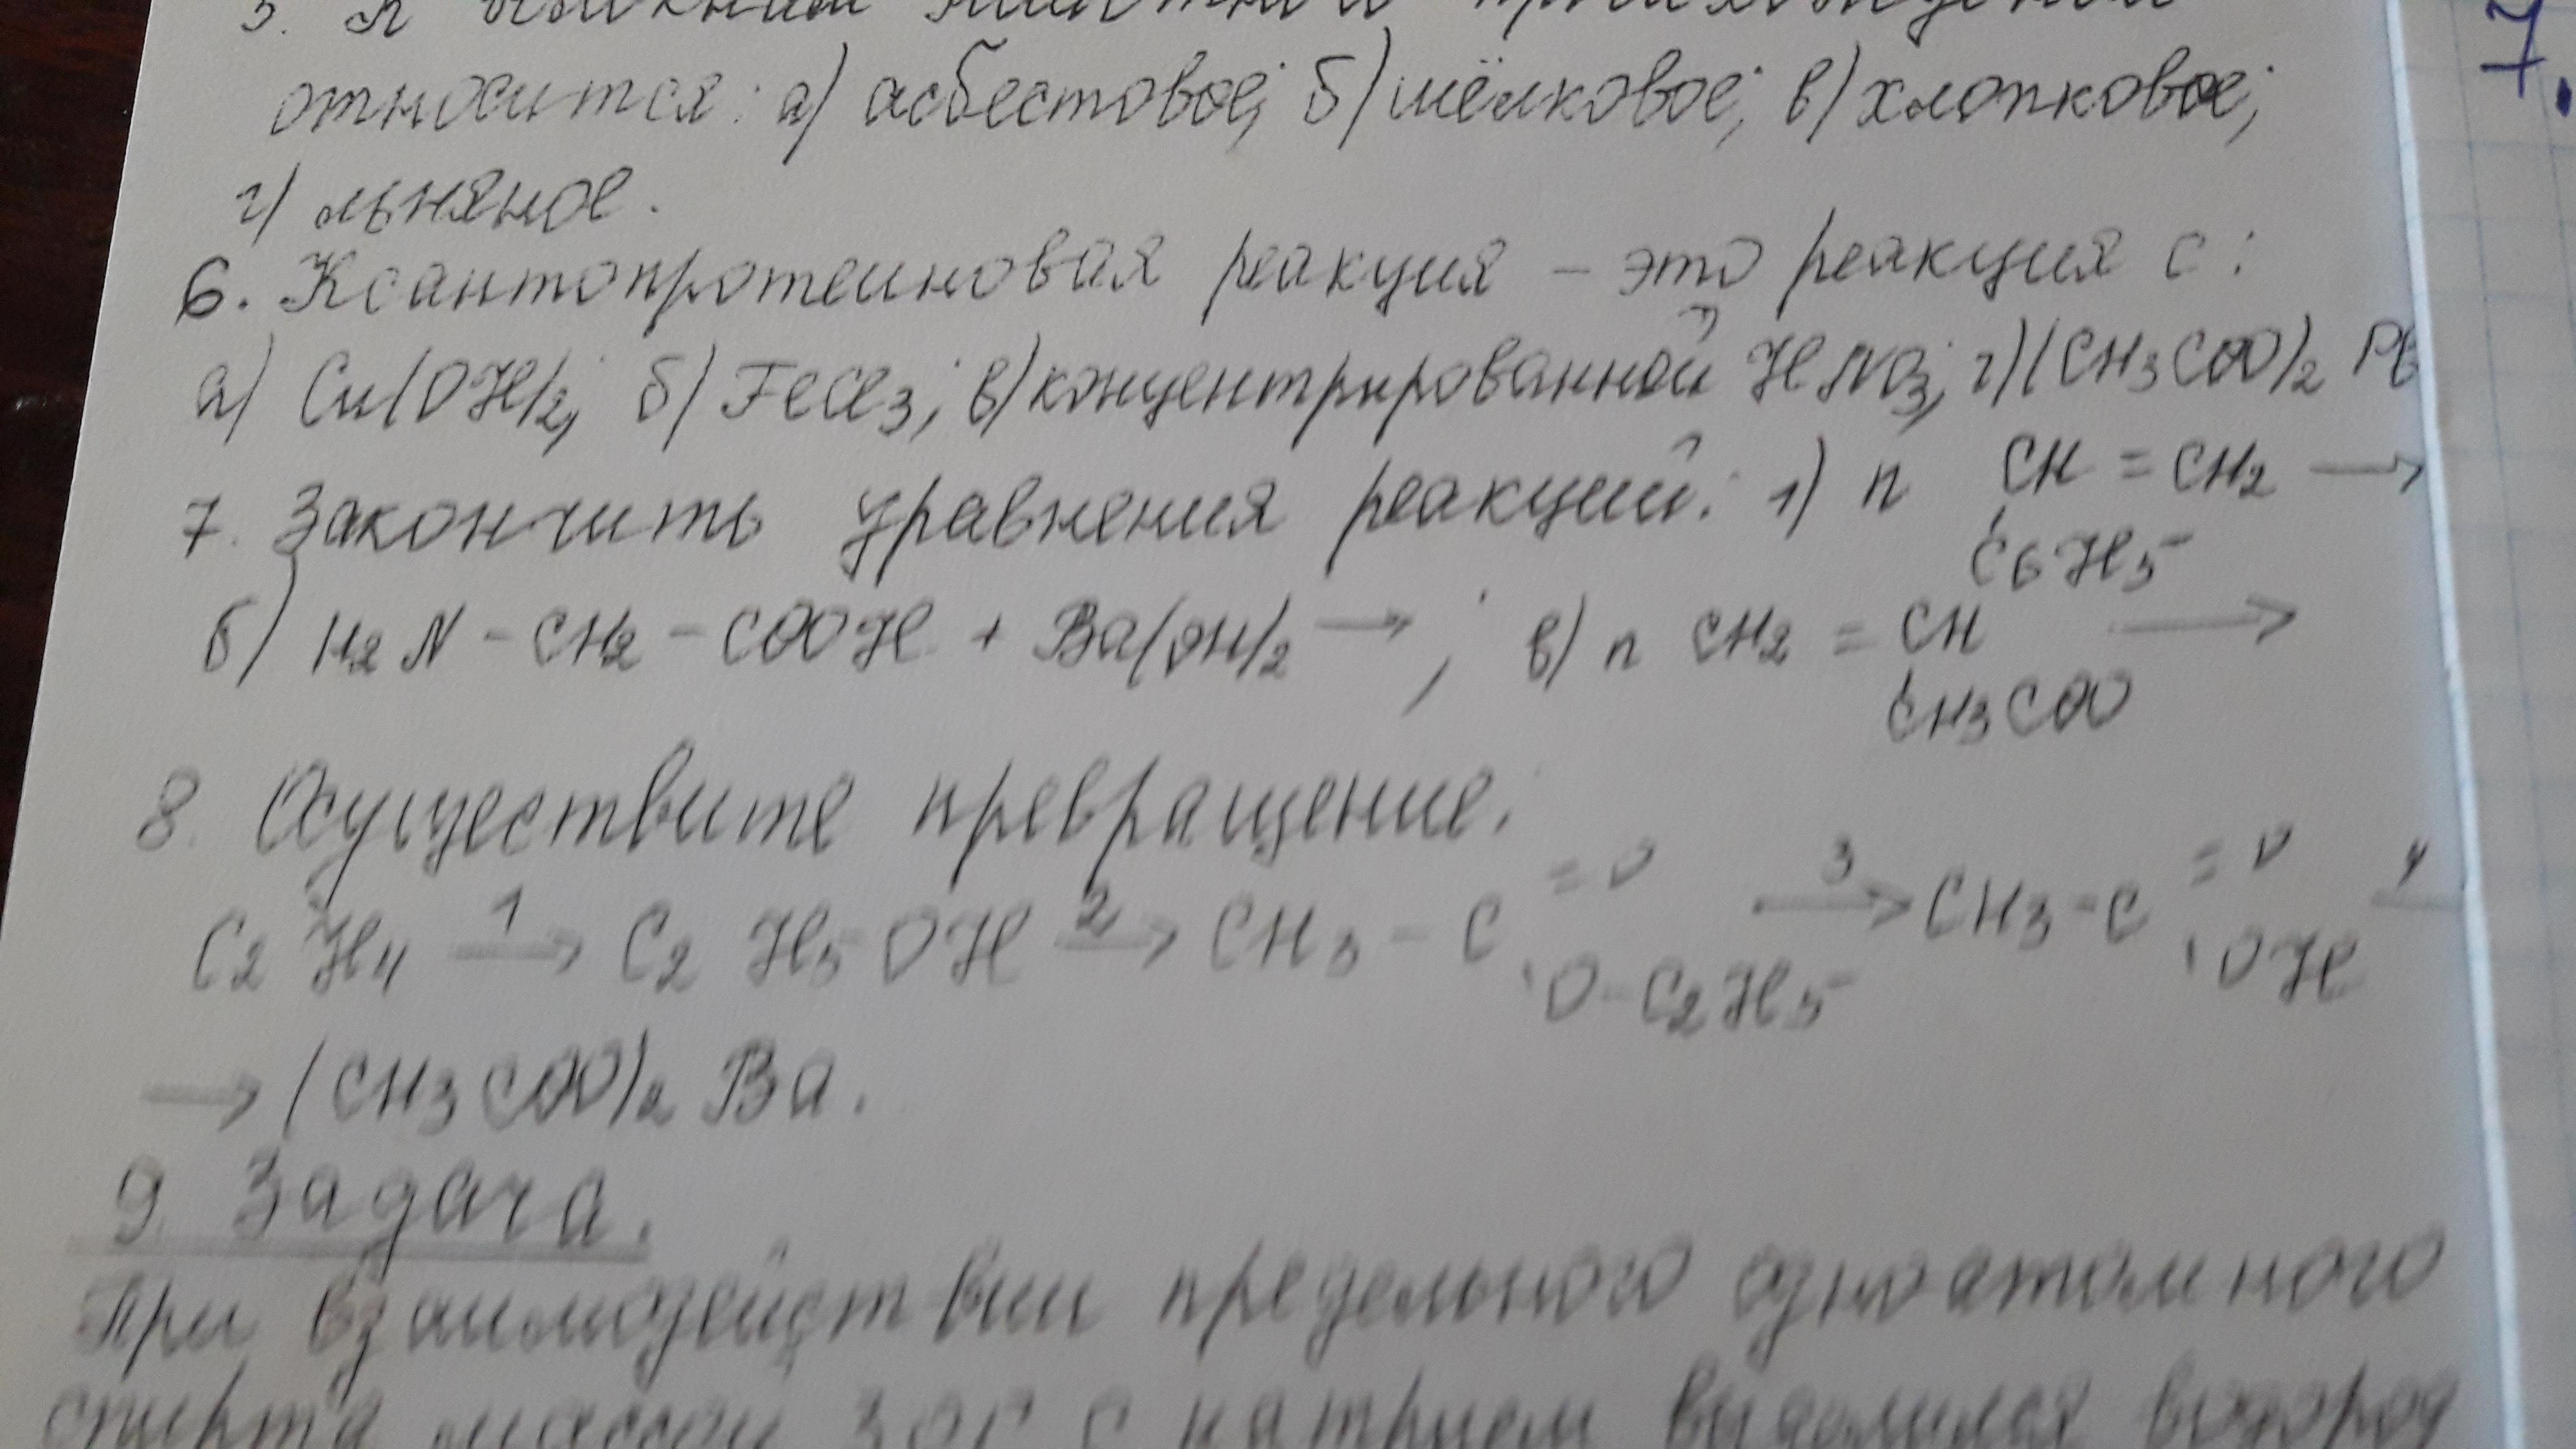 5. К волокнам животного происхождения
относится: а) асбестовое; б) шёлковое; в) хлопковое;
г) льняное.
6. Ксантопротеиновая реакция – это реакция с:
а) Cu(OH)2; б) FeCl3; в) концентрированной HNO3; г) (CH3COO)2 Pb
7. Закончить уравнения реакций: 1) n CH = CH2 →
C6H5
б) H2N – CH2 – COOH + Ba(OH)2 → ; в) n CH2 = CH →
CH3COO
8. Осуществите превращение.
=O =O
C2H4 1→ C2H5OH 2→ CH3 – C 3→ CH3 – C 4
O – C2H5 OH
→ (CH3COO)2 Ba.
9. Задача.
При взаимодействии предельного одноатомного
спирта массой 30г с натрием выделился водород
7.